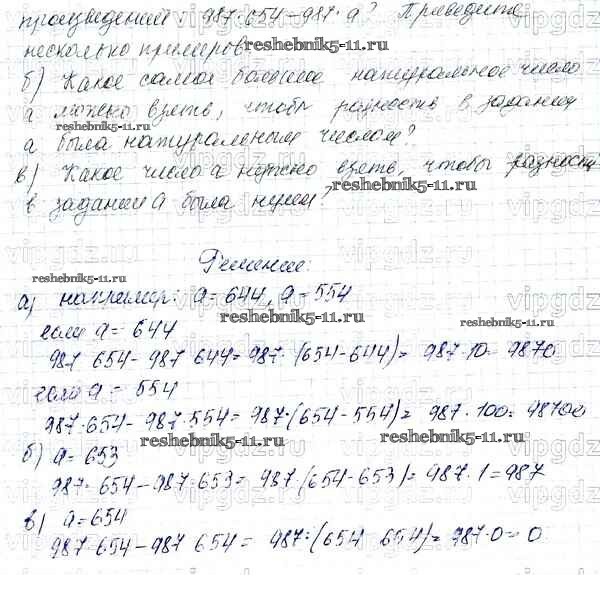 произведений 987·654-987·а? Приведите
несколько примеров
reshebnik5-11.ru
б) Какое самое большое натуральное число
а можно взять, чтобы разность в задании
reshebnik5-11.ru
а была натуральным числом?
в) Какое число а нужно взять, чтобы разность
reshebnik5-11.ru
в задании а была нулем?
Решение:
reshebnik5-11.ru
а) например: а=644, а=554
reshebnik5-11.ru
если а=644
reshebnik5-11.ru
987 654-987 644=987·(654-644)=987·10=9870
если а= 554
987·654-987·554=987·(654-554)=987·100=98700
reshebnik5-11.ru
б) а=653
987·654-987·653=987·(654-653)=987·1=987
в) а=654
reshebnik5-11.ru
987 654-987 654= 987·(654 654)=987·0=0